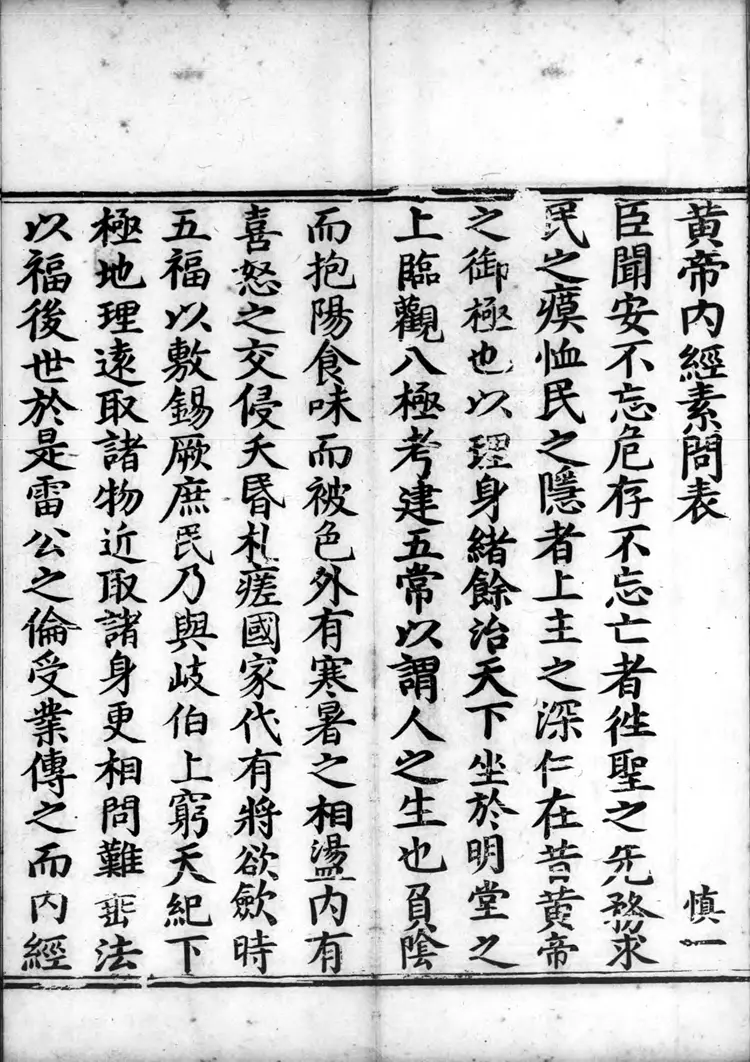 黃帝內經素問表 慎一
臣聞安不忘危存不忘亡者徃聖之先務求
民之瘼恤民之隱者上主之深仁在昔黃帝
之御極也以理身緒餘治天下坐於明堂之
上臨觀八極考建五常以謂人之生也負陰
而抱陽食味而被色外有寒暑之相盪內有
喜怒之交侵夭昬札瘥國家代有將欲歛時
五福以敷錫厥庶民乃與岐伯上窮天紀下
極地理遠取諸物近取諸身更相問難垂法
以福後世於是雷公之倫受業傳之而內經